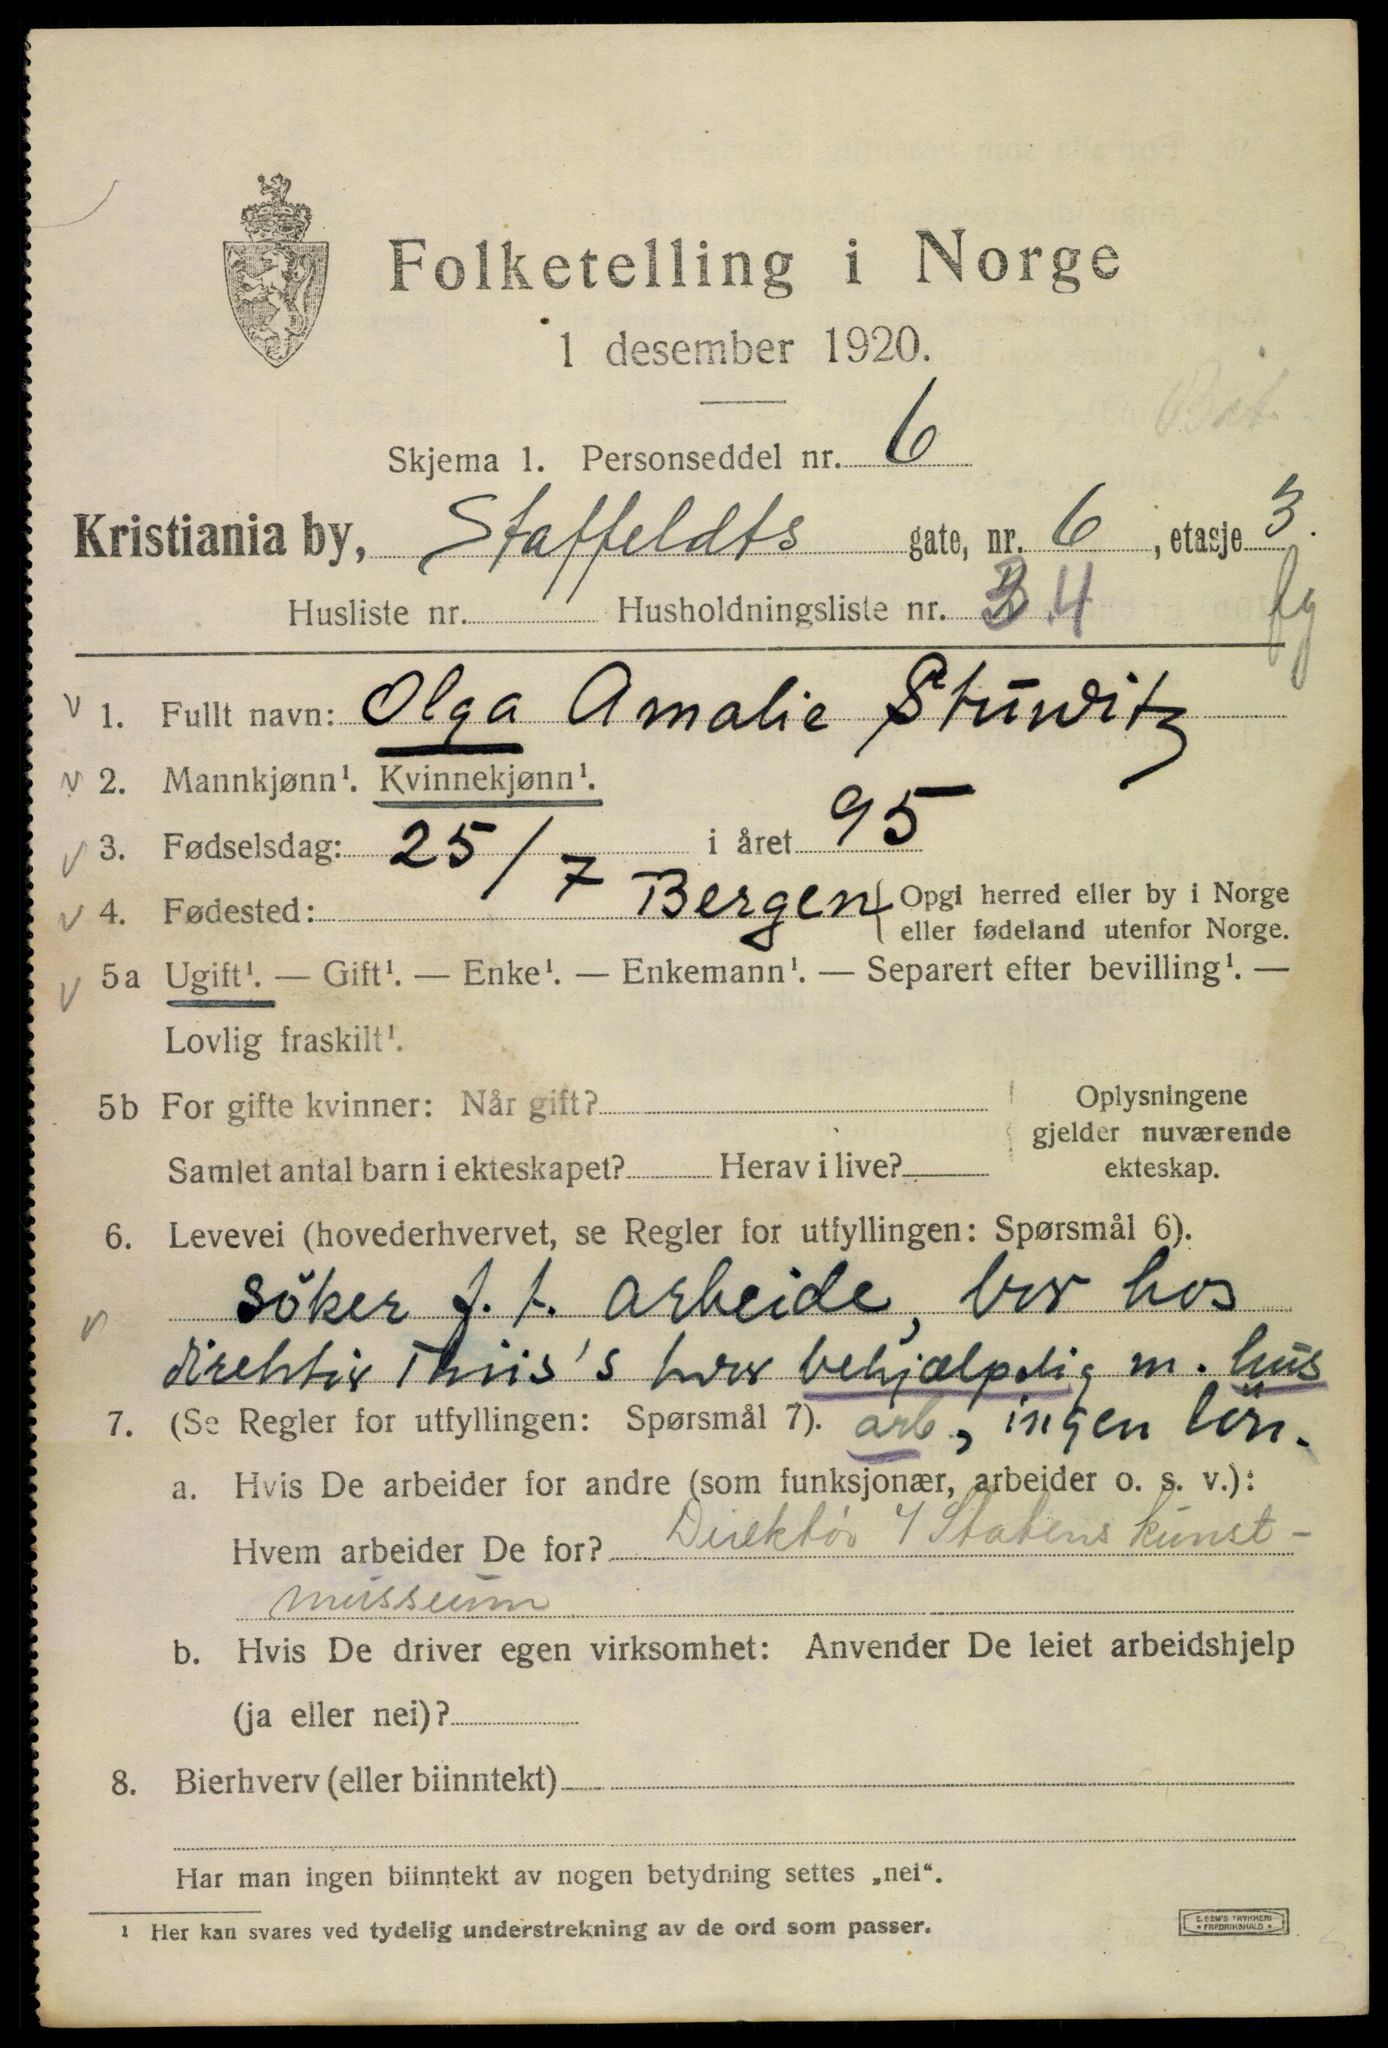 Folketelling i Norge
1 desember 1920.
Skjema 1. Personseddel nr. 6
Kristiania by, Staffeldts gate, nr. 6, etasje 3.
Husliste nr. Husholdningsliste nr. 4
1. Fullt navn: Olga Amalie Stuwitz
2. Mannkjønn¹. Kvinnekjønn¹.
3. Fødselsdag: 25/7 i året 95
4. Fødested: Bergen {Opgi herred eller by i Norge
eller fødeland utenfor Norge.
5a Ugift¹. — Gift¹. — Enke¹. — Enkemann¹. — Separert efter bevilling¹. —
Lovlig fraskilt¹.
5b For gifte kvinner: Når gift? Oplysningene
gjelder nuværende
Samlet antal barn i ekteskapet? Herav i live? ekteskap.
6. Levevei (hovederhvervet, se Regler for utfyllingen: Spørsmål 6).
söker f. t. arbeide, bor hos
direktør Thiis's hvor behjælpelig m. hus
7. (Se Regler for utfyllingen: Spørsmål 7). arb, ingen lön.
a. Hvis De arbeider for andre (som funksjonær, arbeider o. s. v.):
Hvem arbeider De for? Direktör / Statens kunst-
musseum
b. Hvis De driver egen virksomhet: Anvender De leiet arbeidshjelp
(ja eller nei)?
8. Bierhverv (eller biinntekt)
Har man ingen biinntekt av nogen betydning settes „nei“.
1 Her kan svares ved tydelig understrekning av de ord som passer.
E. SEM'S TRYKKERI
• FREDRIKSHALD •